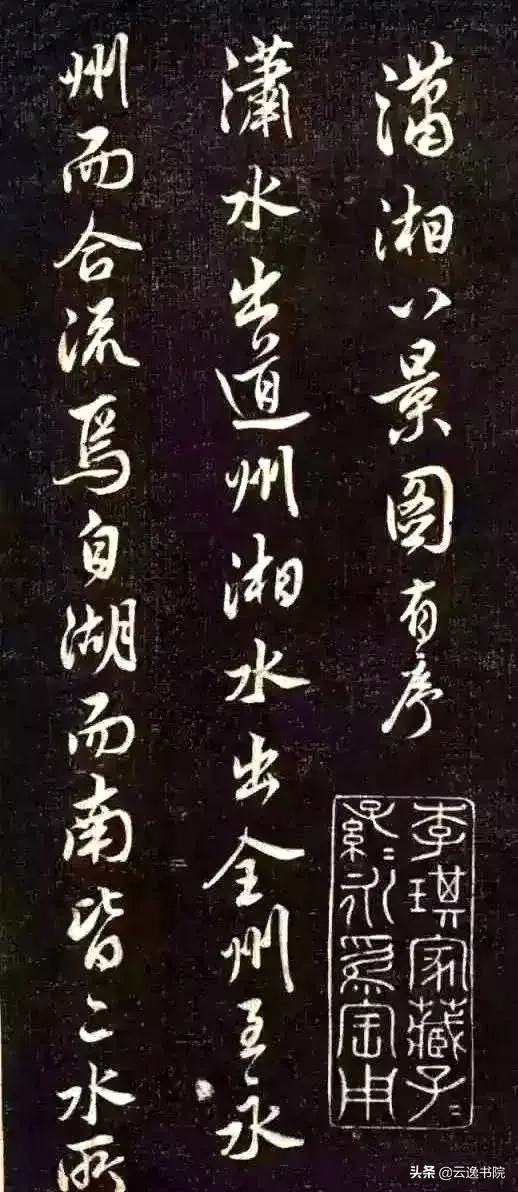 潇湘八景图有序
瀟水出道州湘水出全州至永
州而合流焉自湖而南皆二水所
李琪家藏子〻
孫〻永為寶用
头条 @云逸书院